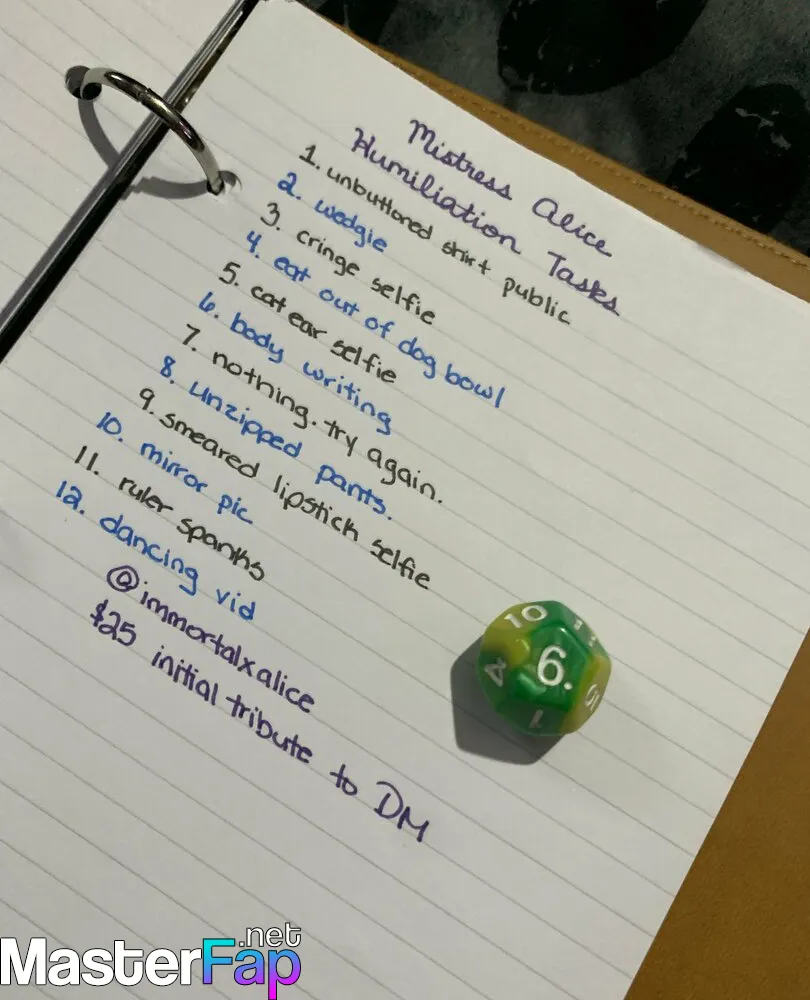 Mistress Alice
Humiliation Tasks
1. unbuttoned shirt public
2. wedgie
3. cringe selfie
4. eat out of dog bowl
5. cat ear selfie
6. body writing
7. nothing. try again.
8. unzipped pants.
9. smeared lipstick selfie
10. mirror pic
11. ruler spanks
12. dancing vid
@immortalxalice
$25 initial tribute to DM
10
6.
2
1
MasterFap.net